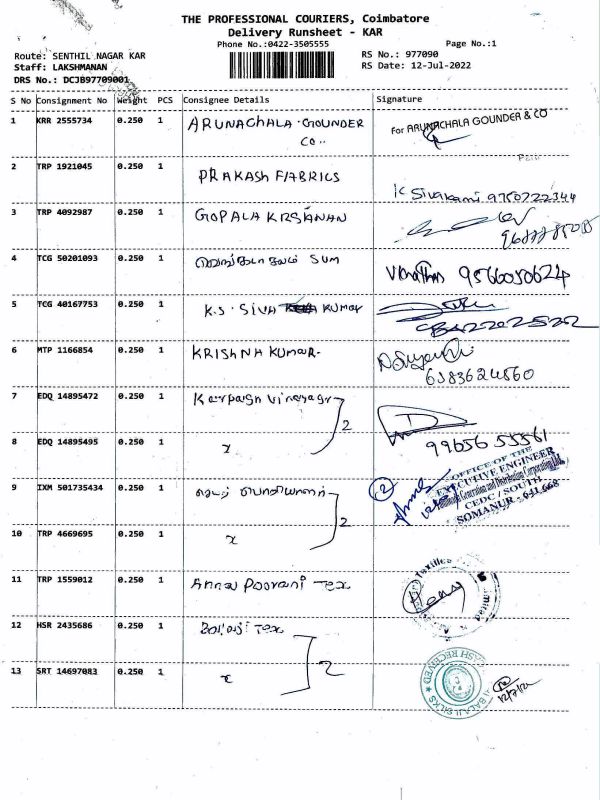 THE PROFESSIONAL COURIERS, Coimbatore
Delivery Runsheet - KAR
Phone No.:0422-3505555
Page No.:1
Route: SENTHIL NAGAR KAR
RS No.: 977090
Staff: LAKSHMANAN
RS Date: 12-Jul-2022
DRS No.: DCJB97709001
S No Consignment No Weight PCS Consignee Details Signature
1 KRR 2555734 0.250 1 ARUNACHALA GOUNDER
CO..
For ARUNACHALA GOUNDER & CO
2 TRP 1921045 0.250 1 PRAKASH FABRICS
K Sivakami 9750222344
3 TRP 4092987 0.250 1 GOPALA KRSHNAN
4 TCG 50201093 0.250 1 வெங்கடாசலம் sum
9566050624
5 TCG 40167753 0.250 1 K.S. SIVA KUMAR
6 MTP 1166854 0.250 1 KRISHNA KUMAR.
6383624860
7 EDQ 14895472 0.250 1 Karpaga Vinayagr
2
8 EDQ 14895495 0.250 1 x
99656 55561
OFFICE OF THE
EXECUTIVE ENGINEER
Generation and Distribution Corporation Ltd.
CEDC / SOUTH
SOMANUR - 641 668
9 IXM 501735434 0.250 1
2
2
10 TRP 4669695 0.250 1 x
11 TRP 1559012 0.250 1 Annai Poorani Tex
12 HSR 2435686 0.250 1 Tex
2
13 SRT 14697083 0.250 1 x
RECEIVED
BALAJI SILKS
12/7/22